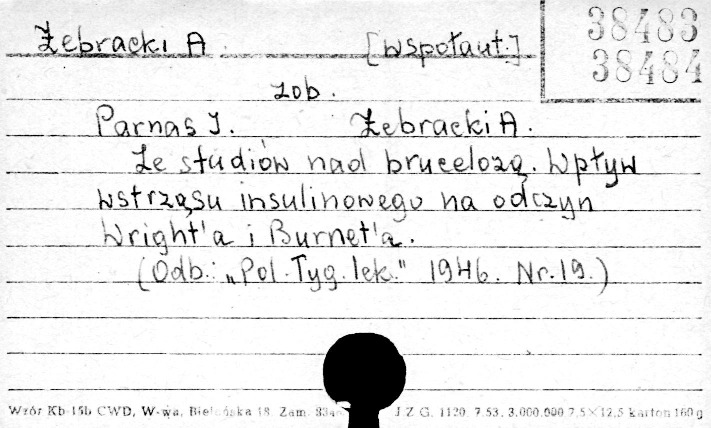 Żebracki A. [współaut.]
38483
38484
zob.
Parnas J. Żebracki A.
Ze studiów nad brucelozą. Wpływ
wstrząsu insulinowego na odczyn
Wright'a i Burnet'a.
(Odb.: „Pol. Tyg. lek." 1946. Nr. 19.)
Wzór Kb-15b CWD, W-wa, Bielańska 18. Zam. J Z G. 1120. 7.53. 3.000.000 7,5×12,5 karton 160 g